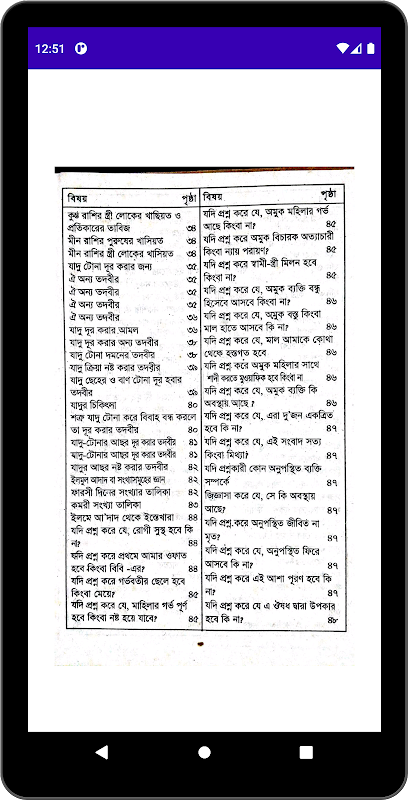 12:51
বিষয় পৃষ্ঠা
কুম্ভ রাশির স্ত্রী লোকের খাছিয়ত ও
প্রতিকারের তাবিজ ৩৪
মীন রাশির পুরুষের খাসিয়ত ৩৪
মীন রাশির স্ত্রী লোকের খাসিয়ত ৩৪
যাদু টোনা দূর করার জন্য ৩৫
ঐ অন্য তদবীর ৩৫
ঐ অন্য তদবীর ৩৫
ঐ অন্য তদবীর ৩৫
ঐ অন্য তদবীর ৩৬
যাদু দূর করার আমল ৩৬
যাদু দূর করার অন্য তদবীর ৩৮
যাদু টোনা দমনের তদবীর ৩৮
যাদু ক্রিয়া নষ্ট করার তদবীর ৩৯
যাদু ছেহের ও বাণ টোনা দূর হবার
তদবীর ৩৯
যাদুর চিকিৎসা ৪০
শত্রু যাদু টোনা করে বিবাহ বন্ধ করলে
তা দূর করার তদবীর ৪০
যাদু-টোনার আছর দূর করার তদবীর ৪১
যাদু-টোনার আছর দূর করার তদবীর ৪১
যাদুর আছর নষ্ট করার তদবীর ৪২
ইলমুল আদাদ বা সংখ্যাসমূহের জ্ঞান ৪২
ফারসী দিনের সংখ্যার তালিকা ৪২
কমরী সংখ্যা তালিকা ৪৩
ইলমে আ'দাদ থেকে ইস্তেখারা ৪৪
যদি প্রশ্ন করে যে, রোগী সুস্থ হবে কি
না? ৪৪
যদি প্রশ্ন করে প্রথমে আমার ওফাত
হবে কিংবা বিবি -এর? ৪৪
যদি প্রশ্ন করে গর্ভবতীর ছেলে হবে
কিংবা মেয়ে? ৪৫
যদি প্রশ্ন করে যে, মাহিলার গর্ভ পূর্ণ
হবে কিংবা নষ্ট হয়ে যাবে? ৪৫
বিষয় পৃষ্ঠা
যদি প্রশ্ন করে যে, অমুক মহিলার গর্ভ
আছে কিংবা না? ৪৫
যদি প্রশ্ন করে অমুক বিচারক অত্যাচারী
কিংবা ন্যায় পরায়ণ? ৪৫
যদি প্রশ্ন করে স্বামী-স্ত্রী মিলন হবে
কিংবা না? ৪৫
যদি প্রশ্ন করে যে, অমুক ব্যক্তি বন্ধু
হিসেবে আসবে কিংবা না? ৪৬
যদি প্রশ্ন করে যে, অমুক বস্তু কিংবা
মাল হাতে আসবে কি না? ৪৬
যদি প্রশ্ন করে যে, মাল আমাকে কোথা
থেকে হস্তগত হবে ৪৬
যদি প্রশ্ন করে অমুক মহিলার সাথে
শাদী করতে মুওয়াফিক হবে কিংবা না ৪৬
যদি প্রশ্ন করে যে, অমুক ব্যক্তি কি
অবস্থায় আছে ? ৪৬
যদি প্রশ্ন করে যে, এরা দু'জন একত্রিত
হবে কি না? ৪৭
যদি প্রশ্ন করে যে, এই সংবাদ সত্য
কিংবা মিথ্যা? ৪৭
যদি প্রশ্নকারী কোন অনুপস্থিত ব্যক্তি
সম্পর্কে ৪৭
জিজ্ঞাসা করে যে, সে কি অবস্থায়
আছে? ৪৭
যদি প্রশ্ন করে অনুপস্থিত জীবিত না
মৃত? ৪৭
যদি প্রশ্ন করে যে, অনুপস্থিত ফিরে
আসবে কি না? ৪৭
যদি প্রশ্ন করে এই আশা পূরণ হবে কি
না? ৪৭
যদি প্রশ্ন করে যে এ ঔষধ দ্বারা উপকার
হবে কি না? ৪৮